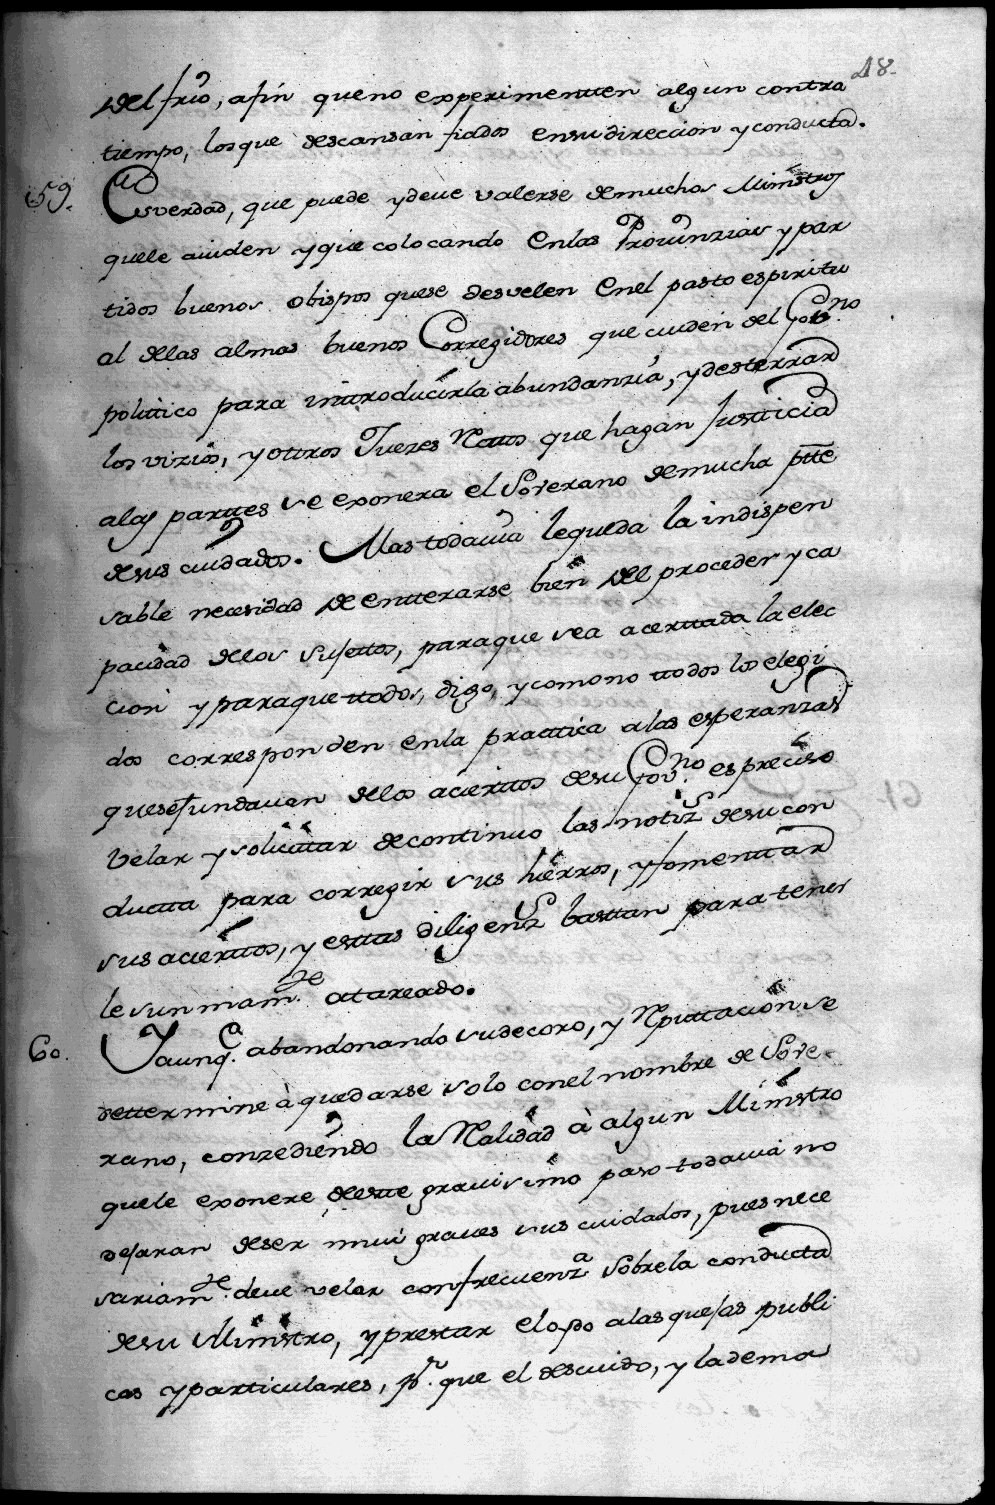 48.
del frio, afin queno experimentten algun contra
tiempo, los que descansan fiados ensu direccion y conducta.
59. Es verdad, que puede y deve valerse de muchos Ministros
quele aiuden y que colocando en las Provinzias y par
tidos buenos obispos quese desvelen en el pasto espiritu
al de las almas buenos Corregidores que cuiden del Gov.no
politico para inttroducir la abundanzia, y desterrar
los vizios, y ottros Juezes Rettos que hagan Justticia
alas parttes se exonera el Soverano de mucha ptte
de sus cuidados. Mas todavia le queda la indispen
sable necesidad de entterarse bien del proceder y ca
pacidad de los sujettos, para que sea acerttada la elec
cion y para que ttodos, digo, y como no ttodos los elegi
dos corresponden en la practtica a las esperanzas
que se fundavan de los acierttos de su Gov.no es preciso
velar y solicittar de continuo las notiz.s de su con
ductta para corregir sus hierros, y fomenttar
sus acierttos, y esttas diligenz.s basttan para tener
le sunmam.te atareado.
60. Y aunq.e abandonando su decoro, y Reputtacion se
dettermine à quedarse solo con el nombre de Sove-
rano, conzediendo la Realidad à algun Ministro
quele exonere, de estte gravisimo paso todavia no
dejaran de ser mui graves sus cuidados, pues nece
sariam.te deve velar con frecuenz.a sobre la conducta
de su Ministro, y prestar el oydo a las quejas publi
cas y particulares, p.r que el descuido, y la dema